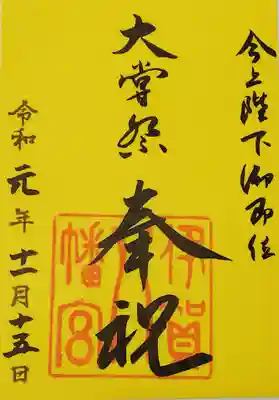 今上陛下御即位
大嘗祭 奉祝
伊賀八幡宮
令和元年十一月十五日